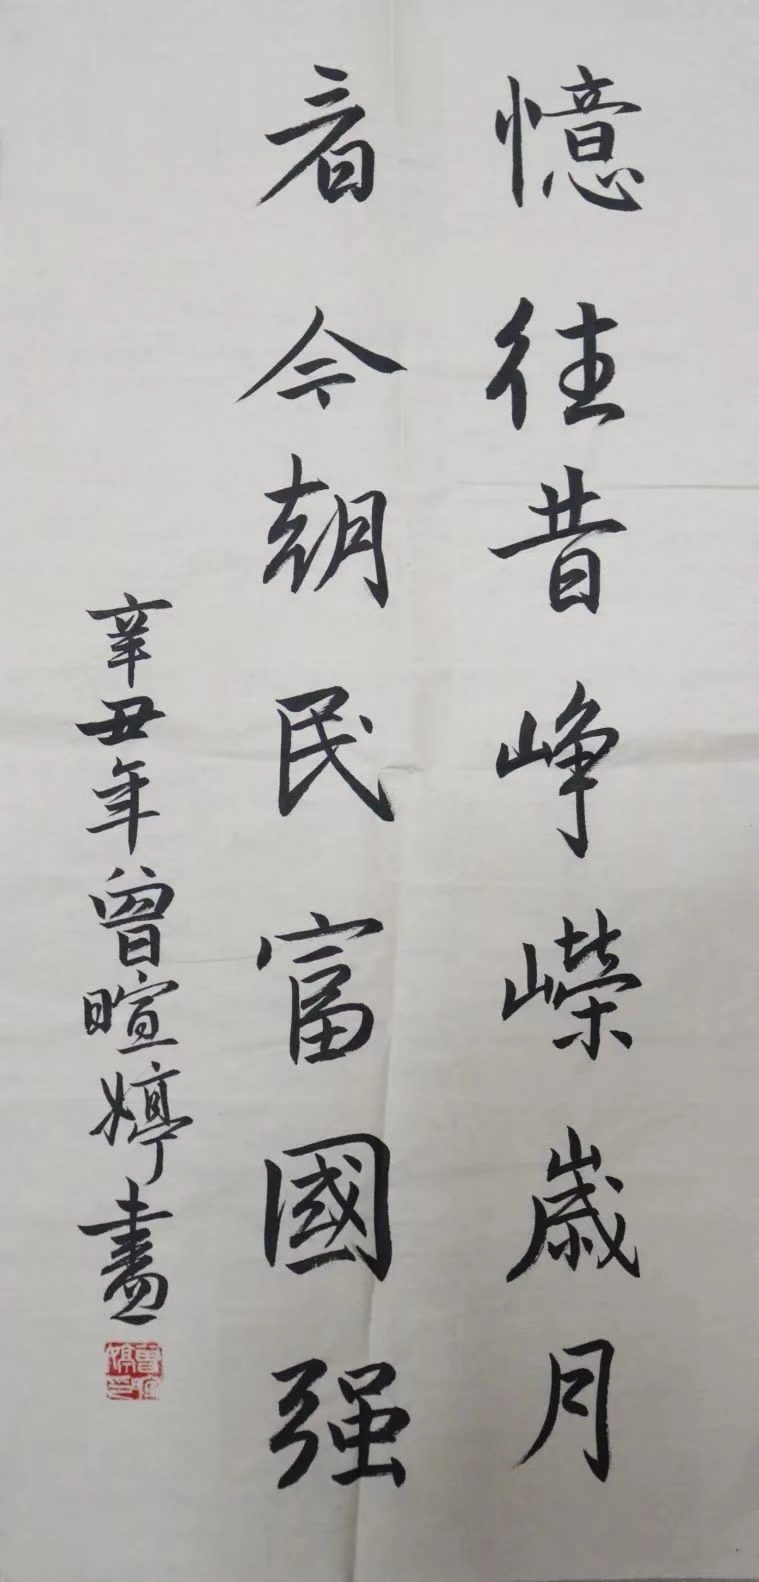 憶往昔崢嶸歲月
看今朝民富國强
辛丑年曾暄婷書